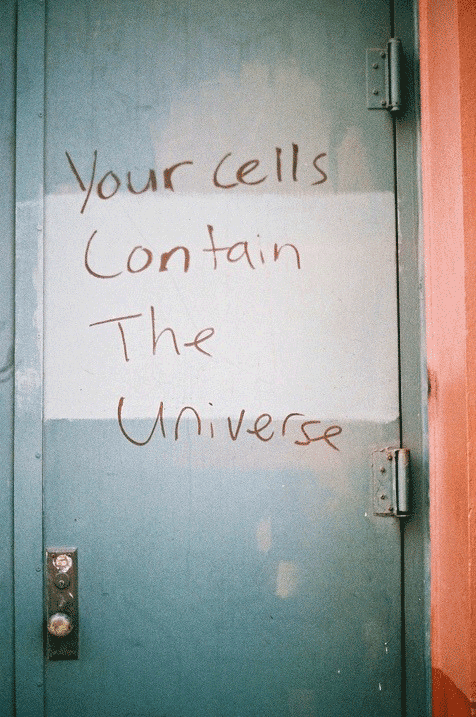 Your cells
Contain
The
Universe